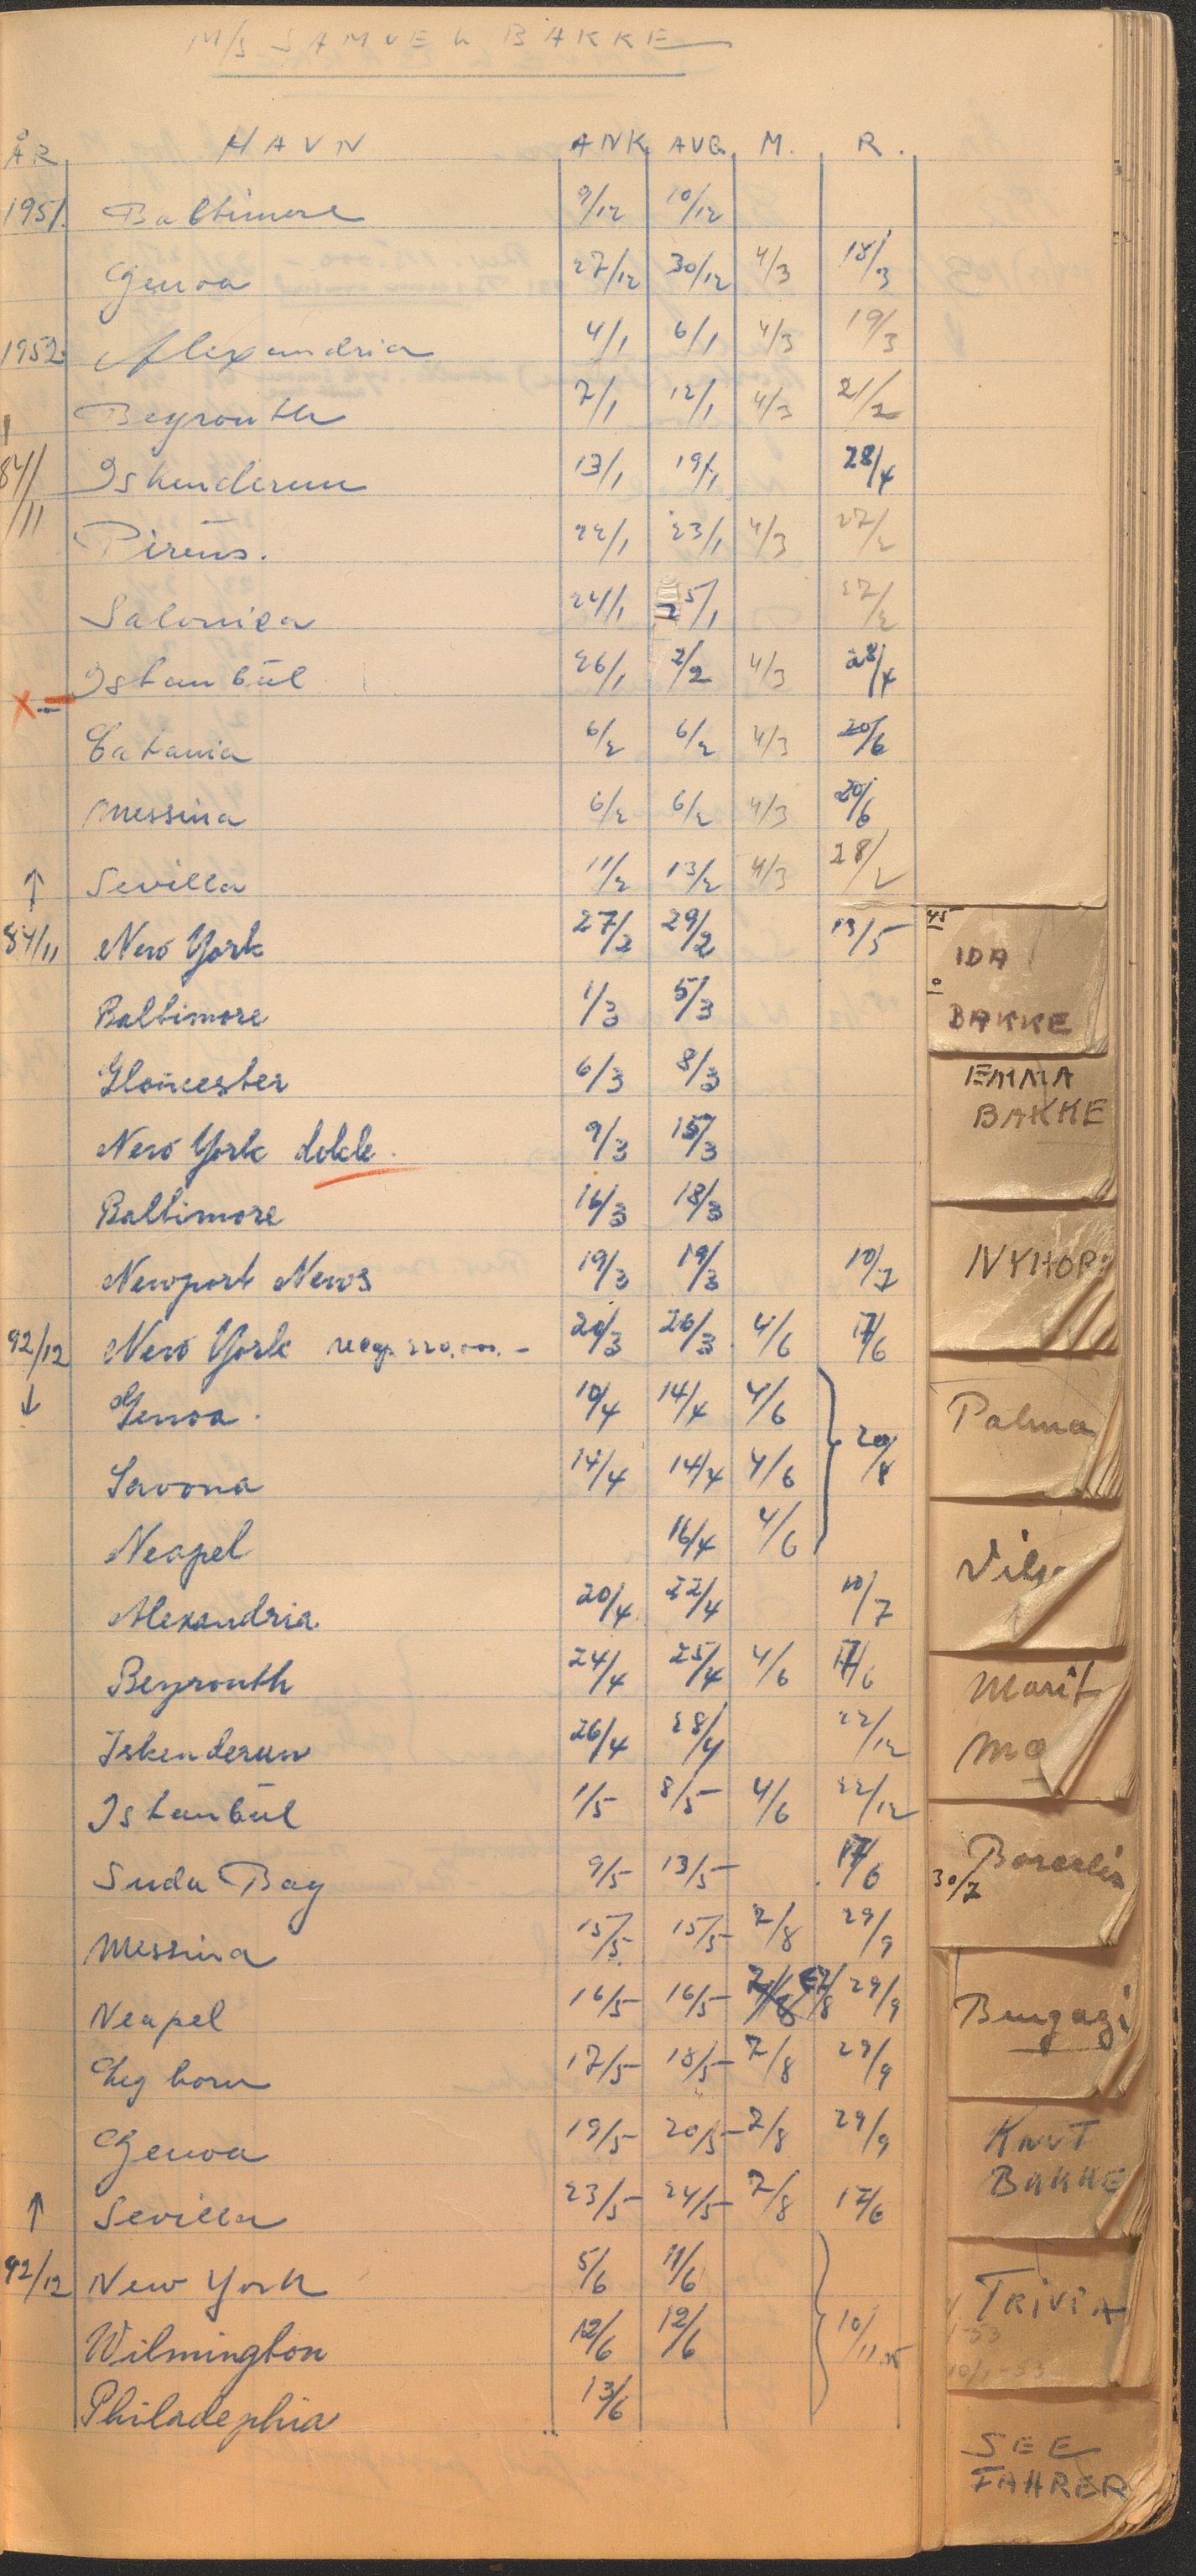 M/S SAMUEL BAKKE
ÅR HAVN ANK. AVG. M. R.
1951. Baltimore 9/12 10/12
Genoa 27/12 30/12 4/3 18/3
1952 Alexandria 4/1 6/1 4/3 19/3
Beyrouth 7/1 12/1 4/3 21/2
84/11 Iskenderun 13/1 19/1 28/4
Pireus. 22/1 23/1 4/3 27/2
Salonica 24/1 25/1 27/2
Istanbul 26/1 2/2 4/3 28/4
X
Catania 6/2 6/2 4/3 20/6
Messina 6/2 6/2 4/3 20/6
↑ Sevilla 11/2 13/2 4/3 28/2
84/11 New York 27/2 29/2 13/5
Baltimore 1/3 5/3
Gloucester 6/3 8/3
New York dokk. 9/3 15/3
Baltimore 16/3 18/3
Newport News 19/3 19/3 10/7
92/12 New York 20/3 26/3 4/6 17/6
↓ Genoa. 10/4 14/4 4/6
Savona 14/4 14/4 4/6 20/8
Neapel 16/4 4/6
Alexandria. 20/4 22/4 10/7
Beyrouth 24/4 25/4 4/6 17/6
Iskenderun 26/4 28/4 22/12
Istanbul 1/5 8/5 4/6 22/12
Suda Bay 9/5 13/5 17/6
Messina 15/5 15/5 7/8 29/9
Neapel 16/5 16/5 7/8 29/9
Leghorn 17/5 18/5 7/8 29/9
Genoa 19/5 20/5 7/8 29/9
↑ Sevilla 23/5 24/5 7/8 17/6
92/12 New York 5/6 11/6
Wilmington 12/6 12/6 10/11
Philadephia 13/6
45
IDA
BAKKE
EMMA
BAKKE
NYHOR
Palma
Vils
Marit
Mo
30/7
Bengazi
KNUT
BAKKE
TRIVIA
10/1-53
SEE
FAHRER